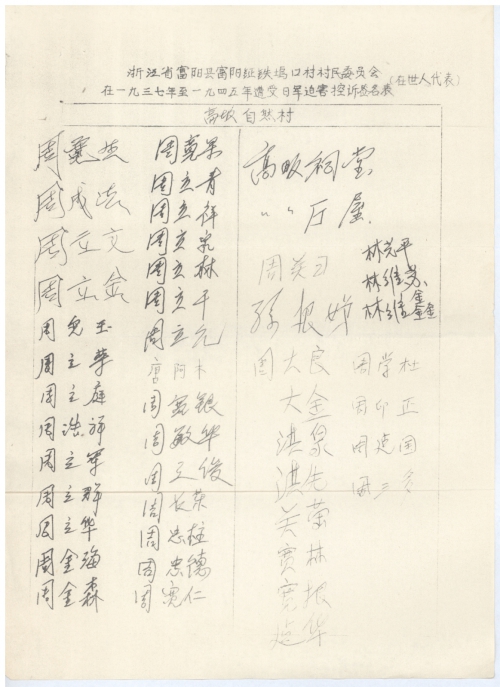 浙江省富阳县富阳镇鉄塢口村村民委员会
在一九三七年至一九四五年遭受日军迫害控诉签名表
(在世人代表)
高畈自然村
周
周成法
周立文
周立金
周兒玉
周立華
周立庭
周浩祥
周立軍
周立群
周立华
周金海
周金森
周堯杲
周立青
周立祥
周立泉
周立林
周立千
周立元
唐阿木
周银
周敏华
周立俊
周长荣
周忠柱
周忠德
周宽仁
高畈祠堂
〃〃石屋
周关刁
孫根娣
周大良
大金
洪泉
洪先
关萤
贾林
宽振
华
林光平
林维芳
林维鑫
周学杜
周印正
周建国
周三